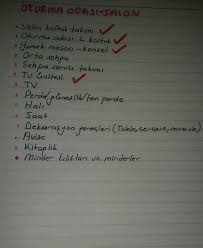 OTURMA ODASI-SALON
Salon koltuk takımı
Oturma odası L koltuk
Yemek masası - konsol
Orta sehpa
Sehpa servis takımı
Tv ünitesi
TV
Perde/güneşlik/fon perde
Halı
Saat
Dekorasyon gereçleri (Tablo, çerçeve, mum vb)
Avize
Kitaplık
Minder kılıfları ve minderler